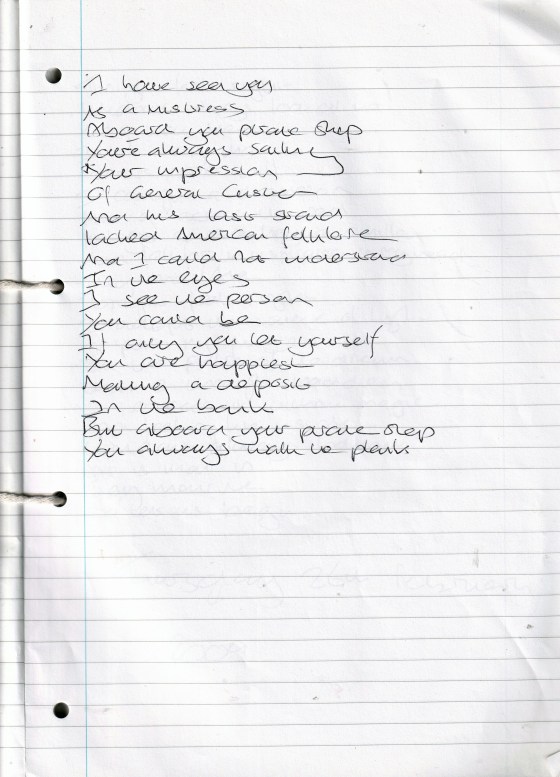 I have seen you
As a mistress
Aboard you pirate ship
You're always sailing
Your impression
Of General Custer
And his last stand
lacked American folklore
And I could not understand
In the eyes
I see the person
You could be
If only you let yourself
You are happiest
Making a deposit
In the bank
But aboard your pirate ship
You always walk the plank